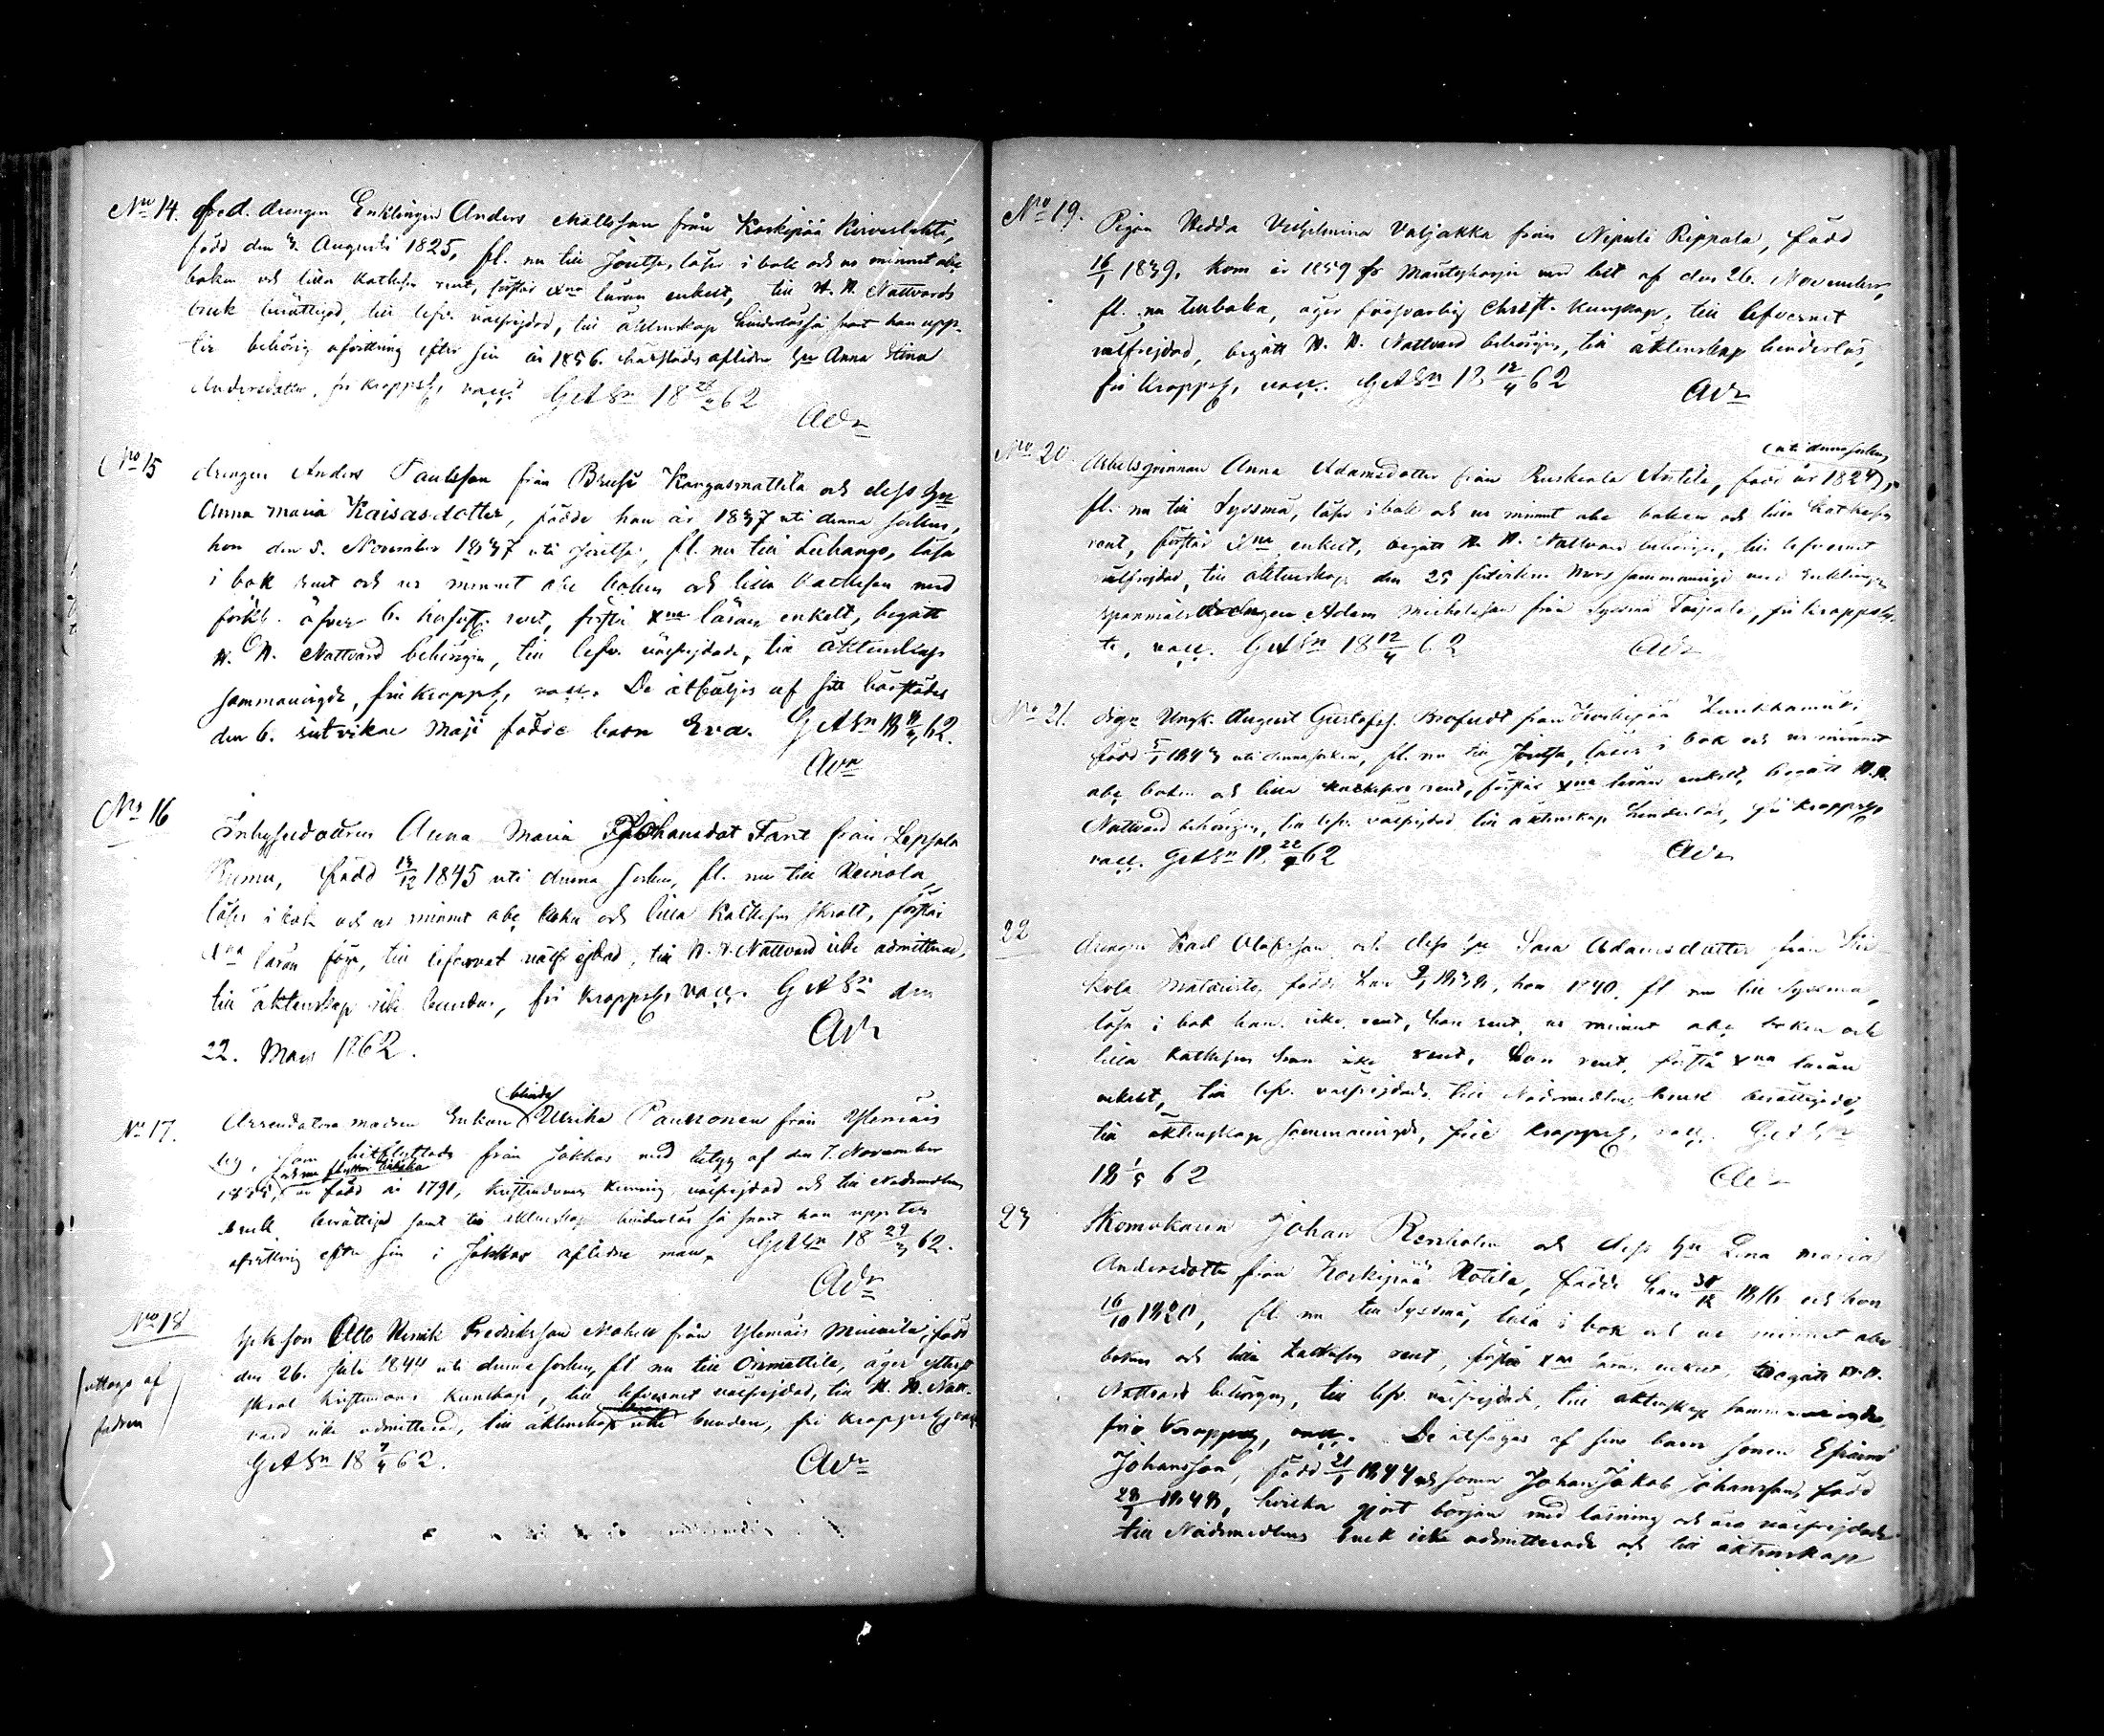 No 14. fred. drengen Enklingen Anders Mattsson från Koskipää Kirveslahti,
född den 3. Augusti 1825, fl. nu till Joutsa, läser i bok och ur minnet abc
boken och lilla Kateksen rent, förstår xna läran enkelt, till H. H. Nattvards
bruk berättigad, till lefv. välfrejdad, till äktenskap hinderlös så snart han upp-
ter behörig afvittring efter sin år 1856 härstädes aflidne hu Anna Stina
Andersdotter, fri kroppsly, vacc. GASn 18 62
Adn
No 15 drengen Anders Paulsson från Brusi Kangasmattila och dess hu
Anna Maria Kaisasdotter, födde han år 1837 uti denna socken,
hon den 5. November 1837 uti Joutsa, fl. nu till Luhango, läsa
i bok rent och ur minnet abc boken och lilla Kateksen med
förkl. öfver 6. hufust. rent, förstå xna läran enkelt, begått
H. H. Nattvard behörigen, till lefv. välfrejdade, till äktenskap
sammanvigde, frie kroppsly, vacc. De åtföljes af sitt härstädes
den 6. sistvikne Maji födde barn Eva. GASn 18 62.
Adn
No 16 Inhysedottren Anna Maria Johansdot Fant från Lepsala
Kumu, född 13/12 1845 uti denna socken, fl. nu till Heinola
läser i bok och ur minnet abc boken och lilla Kateksen skralt, förstår
xna läran föga, till lefvernet välfrejdad, till H. H. Nattvard icke admitterad,
till äktenskap icke bunden, fri kroppsly, vacc. GASn den
22. Mars 1862.
Adn
No 17. Arrendators modren Enkan (blinde) Ulrika Paukkonen från Ylemäis
by, som hitflyttade från Jokkas med betyg af den 7. November
och nu flyttar tillbaka
är född år 1791, kristendoms kunnig, välfrejdad och till Nådemedlens
bruk berättigad samt till äktenskap hinderlös så snart hon uppter
afvittring efter sin i Jokkas aflidne man. GASn 18 29/3 62.
Adn
No 18 son Otto Henrik Fredriksson från Ylemäis Mikkila, född
den 26. Juli 1844 uti denna socken, fl nu till Orimattila, äger ytterst
skral kristendoms kunskap, till lefvernet välfrejdad, till H. H. Natt-
vard icke admitterad, till äktenskap icke bunden, fri kroppsly, vacc
(uttogs af
fadren)
GASn 18 7/4 62.
Adn
No 19. Pigan Hedda Vilhelmina Valjakka från Nipuli Rippala, född
16/1 1839, kom år 1859 fr Mäntyharju med bet af den 26. November,
fl. nu tillbaka, äger försvarlig Christl. kunskap, till lefvernet
välfrejdad, begått H. H. Nattvard behörigen, till äktenskap hinderlös,
fri kroppsly, vacc. GASn 18 12/4 62
Adn
No 20. Arbetsqvinnan Anna Adamsdotter från Ruskeala Anttila, född år 1824, (uti denna socken)
fl. nu till Sysmä, läser i bok och ur minnet abc boken och lilla Kateksen
rent, förstår xna enkelt, begått H. H. Nattvard behörigen, till lefvernet
välfrejdad, till äktenskap den 25 sistvikne Mars sammanvigd med Enklingen
spannmåls drängen Adam Michelsson från Sysmä Taipale, fri kroppsly-
te, vacc. GASn 18 12/4 62
Adn
No 21. August Gustafss. från Koskipää
född 5/1 1843 uti denna socken, fl. nu till Joutsa, läser i bok och ur minnet
abc boken och lilla kateksen rent, förstår xna läran enkelt, begått H. H.
Nattvard behörigen, till lefv. välfrejdad till äktenskap hinderlös, fri kroppsly
vacc. GASn 18 22/4 62
Adn
22 drengen Karl Olofsson och dess hu Sara Adamsdotter från
födde han 1838, hon 1840, fl nu till Sysmä,
läsa i bok han icke rent, hon rent, ur minnet abc boken och
lilla kateksen han icke rent, hon rent, förstå xna läran
enkelt, till lefv. välfrejdade till Nådemedlens bruk berättigade,
till äktenskap sammanvigde, frie kroppsly, vacc. GASn
18 1/5 62
Adn
23 Skomakaren Johan Renholm och dess hu Lena Maria
Andersdotter från Koskipää Hotila, födde han 1816 och hon
16/10 1820, fl. nu till Sysmä, läsa i bok och ur minnet abc
boken och lilla Kateksen rent, förstå xna läran enkelt, begått H. H.
Nattvard behörigen, till lefv. välfrejdade, till äktenskap sammanvigde,
frie kroppsly, vacc. De åtföljas af sine barn sonen Efraim
Johansson, född 21/1 1844 och sonen Johan Jakob Johansson, född
1848, hvilka gjort början med läsning och äro välfrejdade
till Nådemedlens bruk icke admitterade och till äktenskap